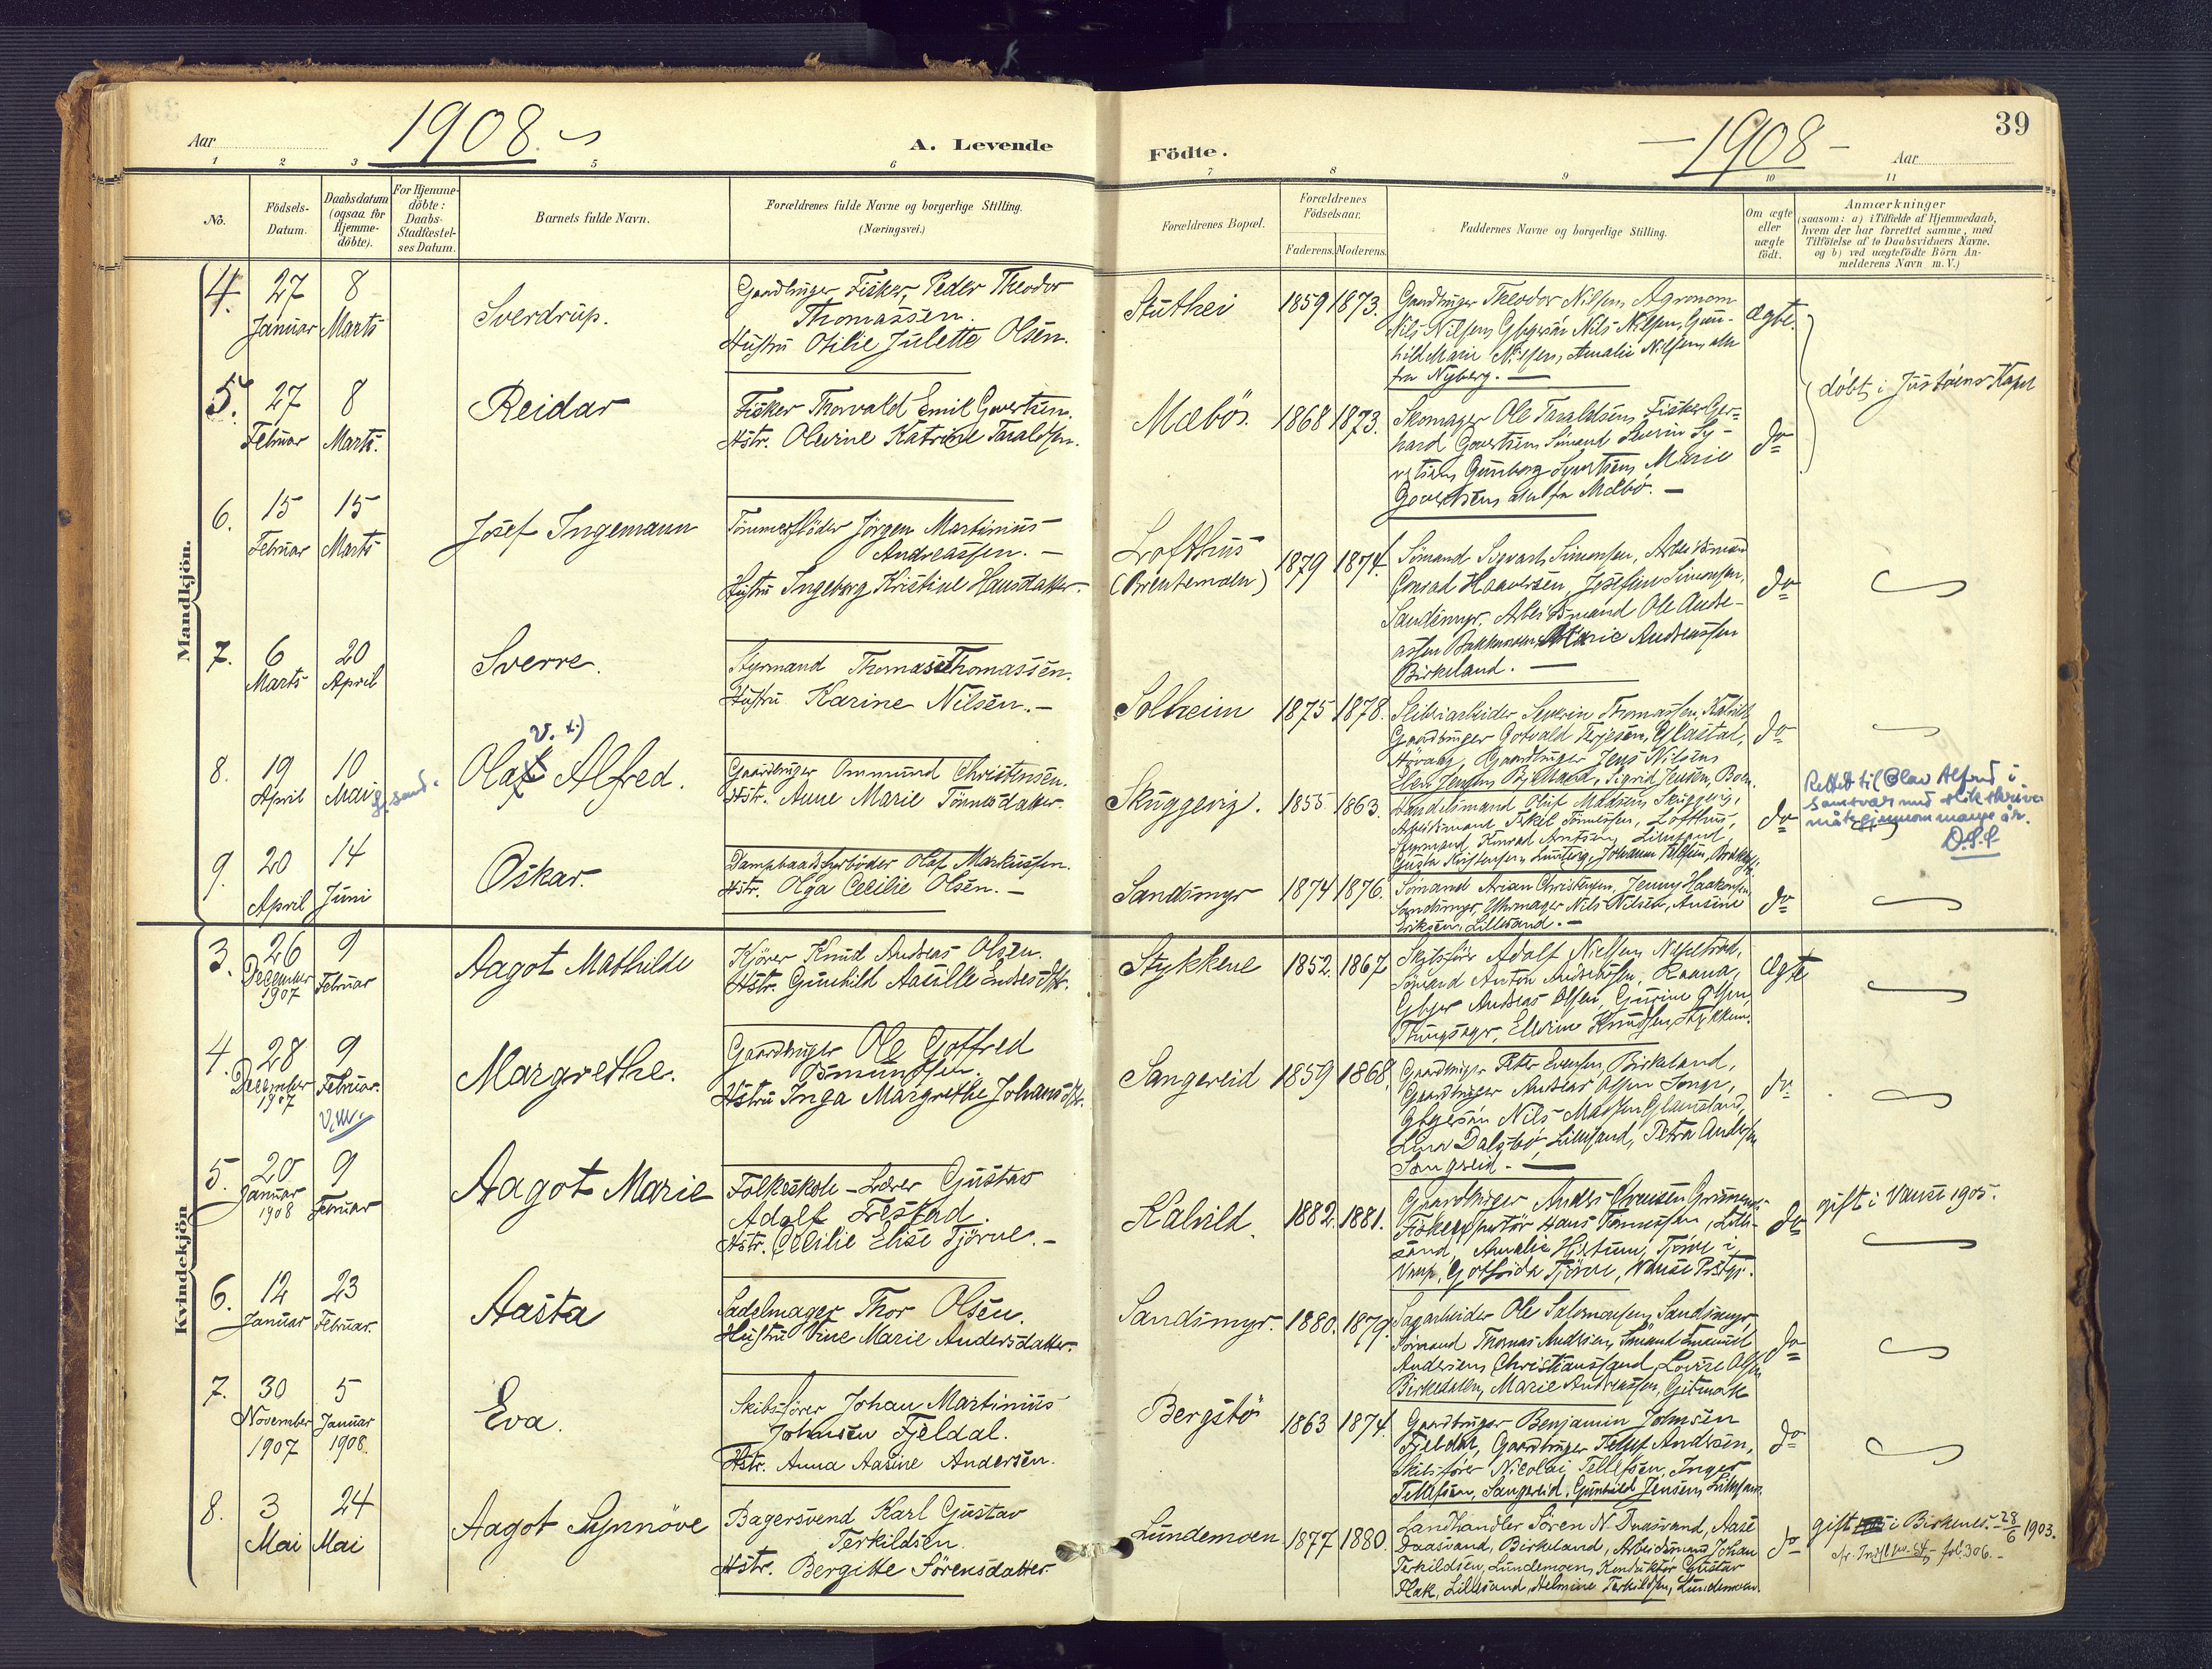 39
Aar 1908.
A. Levende
Födte.
1908
Aar
1 2 3 5 6 7 8 9 10 11
No.
Födsels-
Datum.
Daabsdatum
(ogsaa for
Hjemme-
döbte).
For Hjemme-
döbte:
Daabs-
Stadfæstel-
ses Datum.
Barnets fulde Navn.
Forældrenes fulde Navne og borgerlige Stilling.
(Næringsvei.)
Forældrenes Bopæl.
Forældrenes
Födselsaar.
Faderens. Moderens.
Faddernes Navne og borgerlige Stilling.
Om ægte
eller
uægte
födt.
Anmærkninger
(saasom: a) i Tilfælde af Hjemmedaab,
hvem der har forrettet samme, med
Tilföielse af to Daabsvidners Navne.
og b) ved uægtefödte Börn An-
melderens Navn m. V.)
Mandkjön.
4. 27 Januar
8 Marts
Sverdrup.
Gaardbruger Fisker, Peder Theodor
Thomassen.
Hustru Otilie Julette Olsen.
Stuthei 1859 1873.
Gaardbruger Theodor Nilsen, Agronom
Nils Nilsen, Nils Nilsen, Gun-
hild Marie Nilsen, Amalie Nilsen, alle
fra Nyberg.
ægte.
döbt i Justöens Kapel
5. 27 Februar
8 Marts.
Reidar
Fisker Thorvald Emil Govertsen.
Hstr. Olevine Katrine Taraldsen.
Mæbö. 1868 1873.
Skomager Ole Taraldsen, Fisker Ger-
hard Govertsen, Sömand
Gunborg Marie
Govertsen alle fra Mæbö.
do
6. 15 Februar
15 Marts
Josef Ingemann
Tömmerflöder Jörgen Martinius
Andreassen.
Hustru Ingeborg Kristine Hansdatter.
Lofthus
1879 1874.
Sömand Simonsen, Arbeidsmand
Conrad Josefine Simonsen,
Sandsmyr. Arbeidsmand Ole Andre-
assen Marie Andreassen
Birkeland.
do
7. 6 Marts
20 April
Sverre.
Styrmand Thomas Thomassen.
Hustru Karine Nilsen.
Solheim 1875 1878.
Severin Thomassen, Kalvild
Gaardbruger Gotvald Terjesen,
Gaardbruger Jens Nilsen
Jensen Birkeland, Sigrid Jensen,
do
8. 19 April
10 Mai
L.sand.
v. x)
Olaf Alfred.
Gaardbruger Ommund Christensen.
Hstr. Anne Marie Tönnesdatter.
Skuggevig. 1855 1863.
Handelsmand Oluf Madsen, Skuggevig,
Arbeidsmand Terkel Tönnessen, Lofthus,
Styrmand Konrad Lillesand
do
Rettet til Olav Alfred i
samsvar med slik skrive-
måte gjennom mange år.
9. 20 April
14 Juni
Oskar.
Dampbaadsfyrböder Olaf Markussen.
Hstr. Olga Cecilie Olsen.
Sandsmyr 1874 1876.
Sömand Arian Christensen, Jenny Haakonsen
Sandsmyr, Uhrmager Nils Nilsen,
Eriksen, Lillesand.
do
Kvindekjön
3. 26 December 1907
9 Februar
Aagot Mathilde
Kjörer Knud Andreas Olsen.
Hstr. Gunhild Endresdtr.
Stykkene 1852. 1867
Skibsförer Adolf Nielsen,
Sömand Anton Andreassen, Raana,
Gbgr Andreas Olsen, Gurine Olsen,
Elevine Knudsen, Stykkene.
Ægte
4. 28 December 1907
9 Februar.
Margrethe.
Gaardbruger Ole Gotfred
Osmundsen.
Hstru Inga Margrethe Johansdtr.
Sangereid 1859 1868.
Gaardbruger Peter Evensen, Birkeland,
Gaardbruger Andreas Olsen
Gbgersön Nils Madsen Glamsland,
Lena Dalsbö, Lillesand, Petra Andersen
Sangereid.
do
5. 20 Januar 1908
9 Februar
Aagot Marie
Folkeskole-Lærer Gustav
Adolf Frestad
Hstr. Cecilie Elise Tjörve.
Kalvild. 1882. 1881.
Gaardbruger Anders
Hans Tönnessen, Lille-
sand, Amalie Tjörve i
Vanse, Gotfrida Tjörve, Vanse Præstgj.
do
gift i Vanse 1905.
6. 12 Januar
23 Februar.
Aasta
Sadelmager Thor Olsen.
Hustru Vine Marie Andersdatter.
Sandsmyr. 1880. 1879.
Sagarbeider Ole Salomonsen, Sandsmyr,
Sömand Thomas Andersen, Sömand
Andersen, Christianssand, Lovise Olsen
Birkedalen, Marie Andreassen, Gitmark
do
7. 30 November 1907
5 Januar 1908.
Eva.
Skibsförer Johan Martinius
Johnsen Fjeldal.
Hstr. Anna Aasine Andersen.
Bergstö 1863 1874.
Gaardbruger Benjamin Johnsen
Fjeldal, Gaardbruger Tellef Andersen,
Skibsförer Nicolai Tellefsen, Inger
Tellefsen, Sangereid, Gunhild Jensen, Lillesand.
do
8. 3 Mai
24 Mai
Aagot Synnöve
Bagersvend Karl Gustav
Terkildsen.
Hstr. Bergitte Sörensdatter.
Lundemoen 1877 1880.
Landhandler Sören N. Daasvand, Aase
Daasvand, Birkeland, Arbeidsmand Johan
Terkildsen, Lundemoen, Konduktör Gustav
Flak, Lillesand, Helmine Terkildsen, Lundemoen.
do
gift i Birkenes 28/6 1903.
fol. 306.